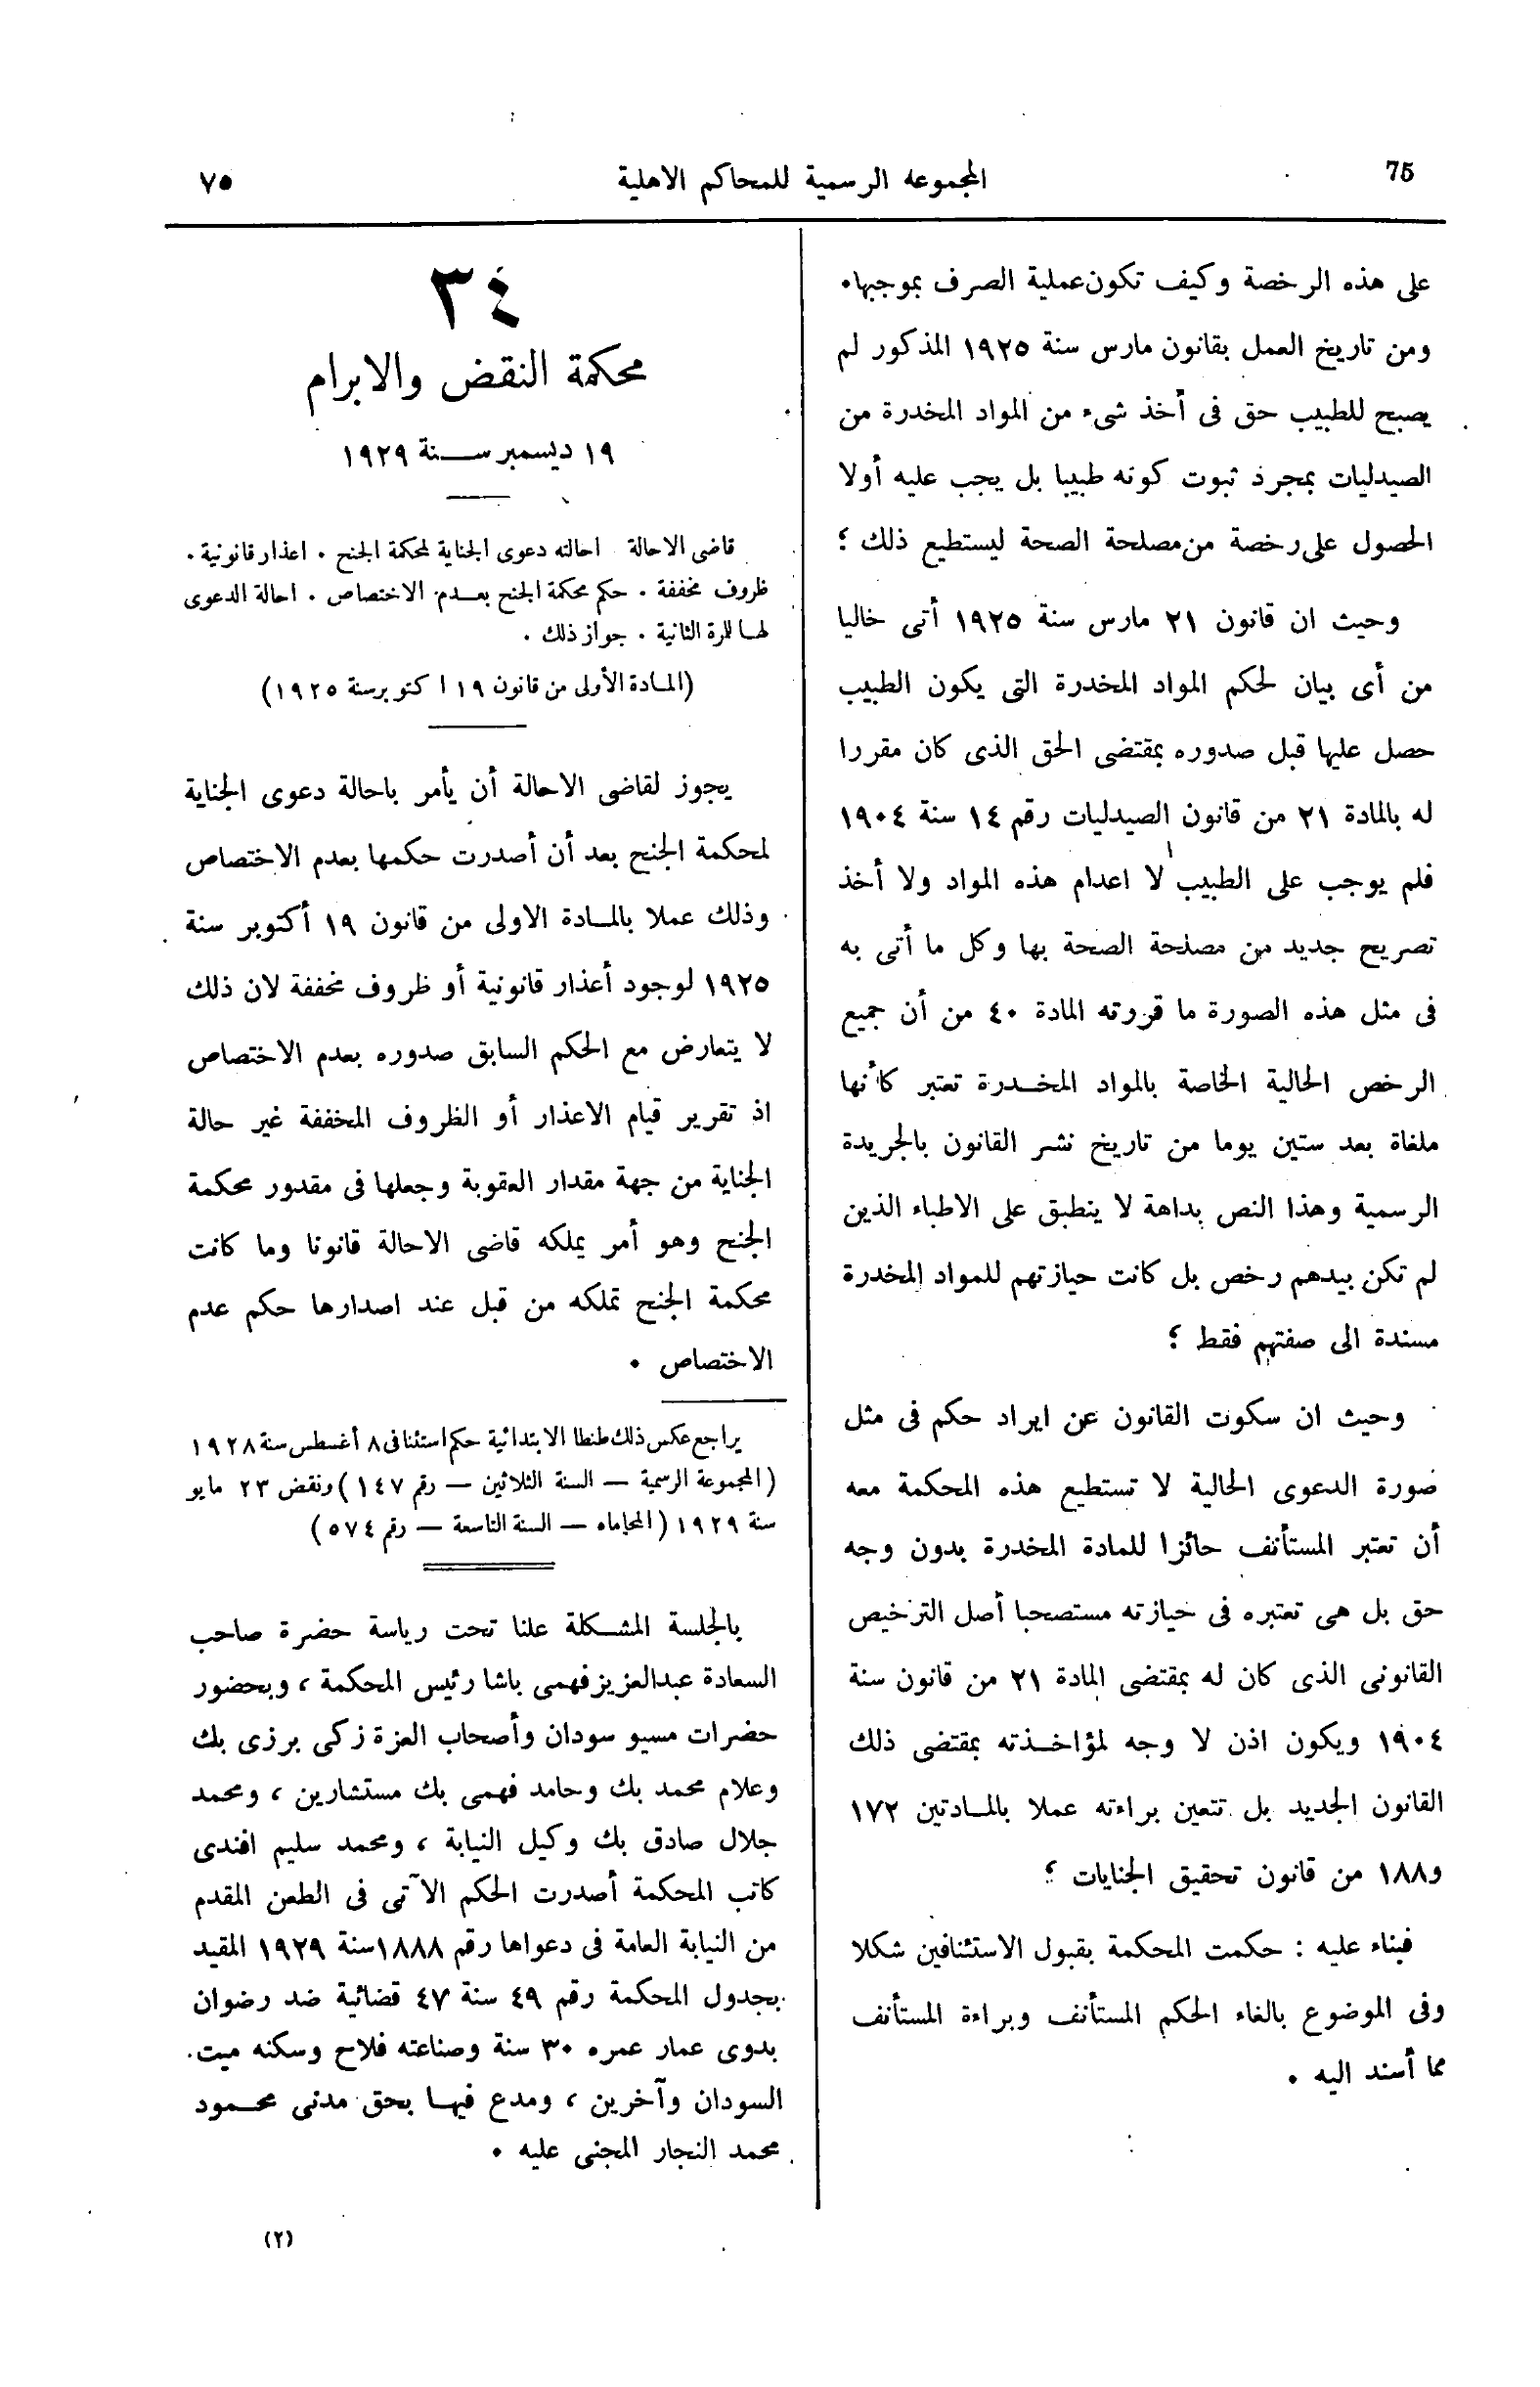 75
المجموعه الرسمية للمحاكم الاهلية
٧٥
على هذه الرخصة وكيف تكون عملية الصرف بموجبها.
ومن تاريخ العمل بقانون مارس سنة ١٩٢٥ المذكور لم
يصبح للطبيب حق فى أخذ شىء من المواد المخدرة من
الصيدليات بمجرد ثبوت كونه طبيبا بل يجب عليه أولا
الحصول على رخصة من مصلحة الصحة ليستطيع ذلك ؛
وحيث ان قانون ٢١ مارس سنة ١٩٢٥ أتى خاليا
من أى بيان لحكم المواد المخدرة التى يكون الطبيب
حصل عليها قبل صدوره بمقتضى الحق الذى كان مقررا
له بالمادة ٢١ من قانون الصيدليات رقم ١٤ سنة ١٩٠٤
فلم يوجب على الطبيب لا اعدام هذه المواد ولا أخذ
تصريح جديد من مصلحة الصحة بها وكل ما أتى به
فى مثل هذه الصورة ما قررته المادة ٤٠ من أن جميع
الرخص الحالية الخاصة بالمواد المخدرة تعتبر كأنها
ملغاة بعد ستين يوما من تاريخ نشر القانون بالجريدة
الرسمية وهذا النص بداهة لا ينطبق على الاطباء الذين
لم تكن بيدهم رخص بل كانت حيازتهم للمواد المخدرة
مسندة الى صفتهم فقط ؛
وحيث ان سكوت القانون عن ايراد حكم فى مثل
صورة الدعوى الحالية لا تستطيع هذه المحكمة معه
أن تعتبر المستأنف حائزا للمادة المخدرة بدون وجه
حق بل هى تعتبره فى حيازته مستصحبا أصل الترخيص
القانونى الذى كان له بمقتضى المادة ٢١ من قانون سنة
١٩٠٤ ويكون اذن لا وجه لمؤاخذته بمقتضى ذلك
القانون الجديد بل تتعين براءته عملا بالمادتين ١٧٢
و١٨٨ من قانون تحقيق الجنايات ؛
فبناء عليه : حكمت المحكمة بقبول الاستئنافين شكلا
وفى الموضوع بالغاء الحكم المستأنف وبراءة المستأنف
مما أسند اليه .
٣٤
محكمة النقض والابرام
١٩ ديسمبر سنة ١٩٢٩
قاضى الاحالة احالته دعوى الجناية لمحكمة الجنح . اعذار قانونية .
ظروف مخففة . حكم محكمة الجنح بعدم الاختصاص . احالة الدعوى
لها للمرة الثانية . جواز ذلك .
(المادة الأولى من قانون ١٩ اكتوبر سنة ١٩٢٥)
يجوز لقاضى الاحالة أن يأمر باحالة دعوى الجناية
لمحكمة الجنح بعد أن أصدرت حكمها بعدم الاختصاص
وذلك عملا بالمادة الاولى من قانون ١٩ أكتوبر سنة
١٩٢٥ لوجود أعذار قانونية أو ظروف مخففة لان ذلك
لا يتعارض مع الحكم السابق صدوره بعدم الاختصاص
اذ تقرير قيام الاعذار أو الظروف المخففة غير حالة
الجناية من جهة مقدار العقوبة وجعلها فى مقدور محكمة
الجنح وهو أمر يملكه قاضى الاحالة قانونا وما كانت
محكمة الجنح تملكه من قبل عند اصدارها حكم عدم
الاختصاص .
يراجع عكس ذلك طنطا الابتدائية حكم استئنافى ٨ أغسطس سنة ١٩٢٨
(المجموعة الرسمية — السنة الثلاثين — رقم ١٤٧) ونقض ٢٣ مايو
سنة ١٩٢٩ (المحاماه — السنة التاسعة — رقم ٥٧٤)
بالجلسة المشكلة علنا تحت رياسة حضرة صاحب
السعادة عبدالعزيز فهمى باشا رئيس المحكمة ، وبحضور
حضرات مسيو سودان وأصحاب العزة زكى برزى بك
وعلام محمد بك وحامد فهمى بك مستشارين ، ومحمد
جلال صادق بك وكيل النيابة ، ومحمد سليم افندى
كاتب المحكمة أصدرت الحكم الآتى فى الطعن المقدم
من النيابة العامة فى دعواها رقم ١٨٨٨ سنة ١٩٢٩ المقيد
بجدول المحكمة رقم ٤٩ سنة ٤٧ قضائية ضد رضوان
بدوى عمار عمره ٣٠ سنة وصناعته فلاح وسكنه ميت
السودان وآخرين ، ومدع فيها بحق مدنى محمود
محمد النجار المجنى عليه .
(٢)